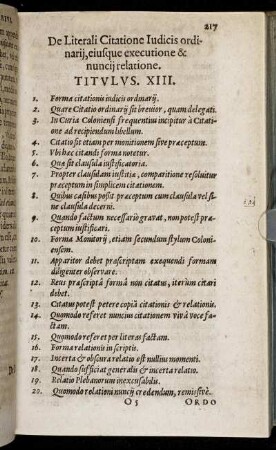 217
De Literali Citatione Iudicis ordi-
narij, eiusque executione &
nuncij relatione.
TITVLVS. XIII.
1. Forma citationis iudicis ordinarij.
2. Quare Citatio ordinarij sit brevior, quam delegati.
3. In Curia Coloniensi frequentius incipitur à Citati-
one ad recipiendum libellum.
4. Citatio sit etiam per monitionem sive præceptum.
5. Vbi hæc citandi forma notetur.
6. Quæ sit clausula iustificatoria.
7. Propter clausulam iustitiæ, comparitione resolvitur
præceptum in simplicem citationem.
8. Quibus casibus possit præceptum cum clausula vel si-
ne clausula decerni.
9. Quando factum necessario gravat, non potest præ-
ceptum iustificari.
10. Forma Monitorij, etiam secundum stylum Coloni-
ensem.
11. Apparitor debet præscriptam exequendi formam
diligenter observare.
12. Reus præscriptâ formâ non citatus, iterum citari
debet.
13. Citatus potest petere copiã citationis & relationis.
14. Quomodo referet nuncius citationem vivâ voce fa-
ctam.
15. Quomodo referet per literas factam.
16. Forma relationis in scriptis.
17. Incerta & obscura relatio est nullius momenti.
18. Quando sufficiat generalis & incerta relatio.
19. Relatio Plebanorum inexcusabilis.
20. Quomodo relationi nuncij credendum, remissivè.
O 5 ORDO